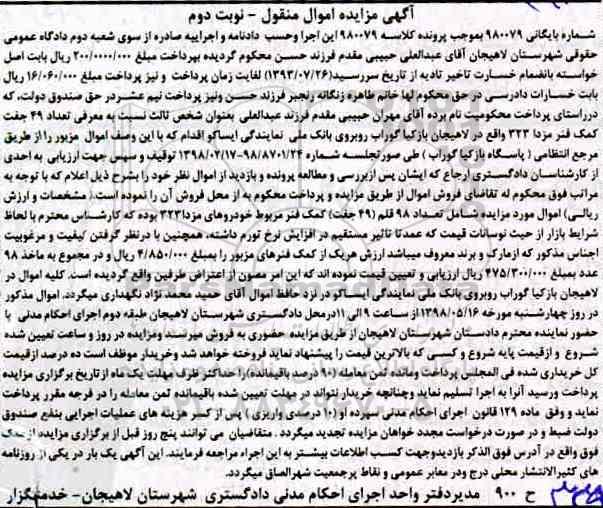 آگهی مزایده اموال منقول - نوبت دوم
شماره بایگانی ۹۸۰۰۷۹ بموجب پرونده کلاسه ۹۸۰۰۷۹ این اجرا وحسب دادنامه و اجراییه صادره از سوی شعبه دوم دادگاه عمومی
حقوقی شهرستان لاهیجان آقای عبدالعلی حبیبی مقدم فرزند حسن محکوم گردیده بپرداخت مبلغ ۲۰۰/۰۰۰/۰۰۰ ریال بابت اصل
خواسته بانضمام خسارت تاخیر تادیه از تاریخ سررسید(۱۳۹۳/۰۷/۲۶) لغایت زمان پرداخت و نیز پرداخت مبلغ ۱۶/۰۶۰/۰۰۰ ریال
بابت خسارات دادرسی در حق محکوم لها خانم طاهره زنگانه رنجبر فرزند حسن ونیز پرداخت نیم عشردر حق صندوق دولت، که
درراستای پرداخت محکومیت نام برده آقای مهران حبیبی مقدم فرزند عبدالعلی بعنوان شخص ثالث نسبت به معرفی تعداد ۴۹ جفت
کمک فنر مزدا ۳۲۳ واقع در لاهیجان بازکیا گوراب روبروی بانک ملی نمایندگی ایساکو اقدام که با این وصف اموال مزبور را از طریق
مرجع انتظامی ( پاسگاه بازکیا گوراب ) طی صورتجلسه شماره ۹۸/۸۷۰۱/۲۴-۱۳۹۸/۰۲/۱۷ توقیف و سپس جهت ارزیابی به احدی
از کارشناسان دادگستری ارجاع که ایشان پس ازبررسی و مطالعه پرونده و بازدید از اموال نظر خود را بشرح ذیل اعلام که با توجه به
مراتب فوق محکوم له تقاضای فروش اموال از طریق مزایده و پرداخت محکوم به از محل فروش آن را نموده است.( مشخصات و ارزش
ریالی) اموال مورد مزایده شامل تعداد ۹۸ قلم (۴۹ جفت) کمک فنر مربوط خودروهای مزدا۳۲۳ بوده که کارشناس محترم با لحاظ
شرایط بازار از حیث نوسانات قیمت که عمدتا تاثیر مستقیم در افزایش نرخ تورم داشته، همچنین با درنظر گرفتن کیفیت و مرغوبیت
اجناس مذکور که ازمارک و برند معروف میباشد ارزش هریک از کمک فنرهای مزبور را بمبلغ ۴/۸۵۰/۰۰۰ ریال و در مجموع به ماخذ ۹۸
عدد بمبلغ ۴۷۵/۳۰۰/۰۰۰ ریال ارزیابی و تعیین قیمت نموده اند که این امر مصون از اعتراض طرفین واقع گردیده است. کلیه اموال در
لاهیجان بازکیا گوراب روبروی بانک ملی نمایندگی ایساکو در نزد حافظ اموال آقای حمید محمد نژاد نگهداری میگردد. اموال مذکور
در روز چهارشنبه مورخه ۱۳۹۸/۰۵/۱۶ از ساعت ۹ الی ۱۱درمحل دادگستری شهرستان لاهیجان طبقه دوم اجرای احکام مدنی با
حضور نماینده محترم دادستان شهرستان لاهیجان از طریق مزایده حضوری به فروش میرسند ومزایده در روز و ساعت تعیین شده
شروع و ازقیمت پایه شروع و کسی که بالاترین قیمت را پیشنهاد نماید فروخته خواهد شد وخریدار موظف است ده درصد ازقیمت
کل خریداری شده فی المجلس پرداخت ومانده ثمن معامله (۹۰ درصد باقیمانده)را حداکثر ظرف مهلت یک ماه از تاریخ برگزاری مزایده
پرداخت ورسید آنرا به اجرا تسلیم نماید وچنانچه خریدار نتواند در مهلت تعیین شده باقیمانده ثمن معامله را در فرجه مقرر پرداخت
نماید و وفق ماده ۱۲۹ قانون اجرای احکام مدنی سپرده او (۱۰ درصدی واریزی) پس از کسر هزینه های عملیات اجرایی بنفع صندوق
دولت ضبط و در صورت درخواست مجدد خواهان مزایده تجدید میگردد . متقاضیان می توانند پنج روز قبل از برگزاری مزایده ازمحک
فوق واقع در آدرس فوق الذکر بازدیدوجهت کسب اطلاعات بیشتر به این اجراء مراجعه فرمایند. این آگهی یک بار در یکی از روزنامه
های کثیرالانتشار محلی درج ودر معابر عمومی و نقاط پرجمعیت شهرالصاق میگردد.
ح ۹۰۰ مدیردفتر واحد اجرای احکام مدنی دادگستری شهرستان لاهیجان- خدمتگزار